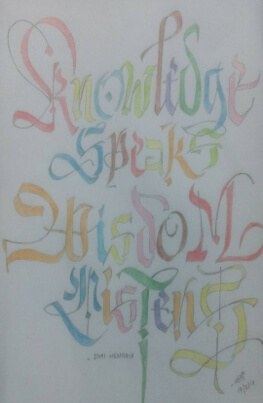 Knowledge
Speaks
Wisdom
Listens
. JIMI HENDRIX